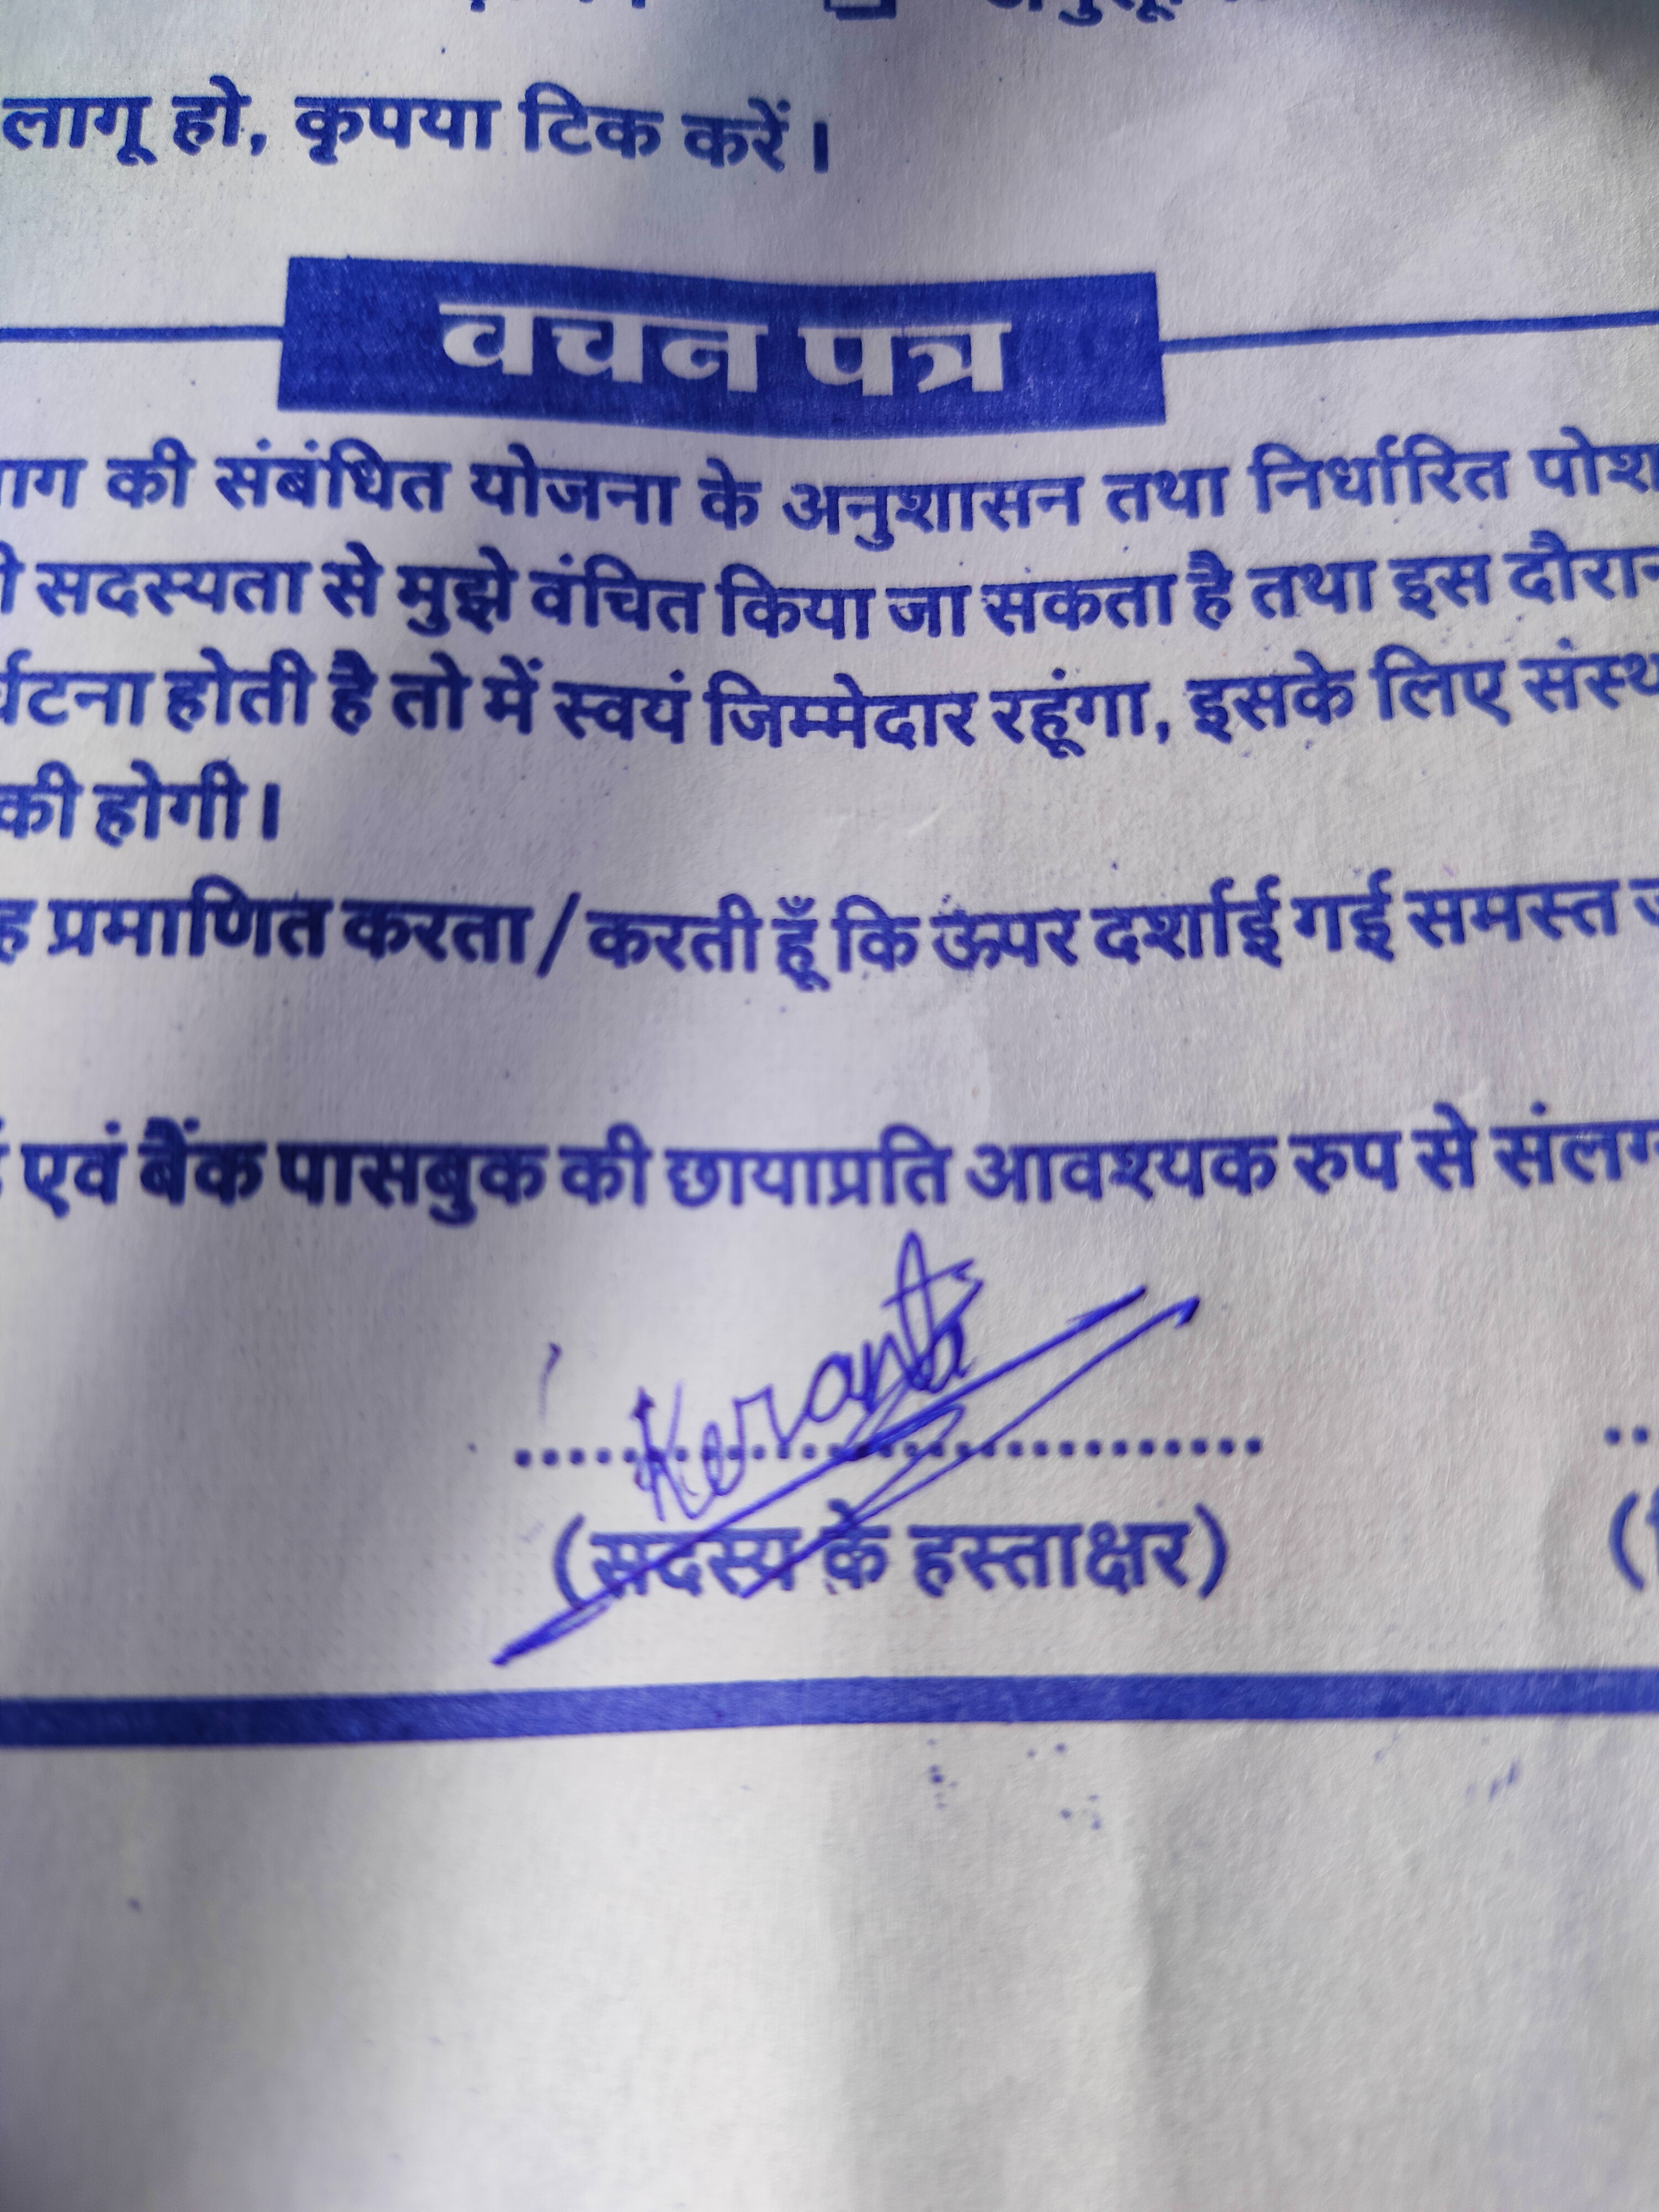 लागू हो, कृपया टिक करें।
वचन पत्र
की संबंधित योजना के अनुशासन तथा निर्धारित
सदस्यता से मुझे वंचित किया जा सकता है तथा इस
होती है तो में स्वयं जिम्मेदार रहूंगा, इसके लिए
की होगी।
प्रमाणित करता/करती हूँ कि ऊपर दर्शाई गई समस्त
एवं बैंक पासबुक की छायाप्रति आवश्यक रुप से
(सदस्य के हस्ताक्षर)